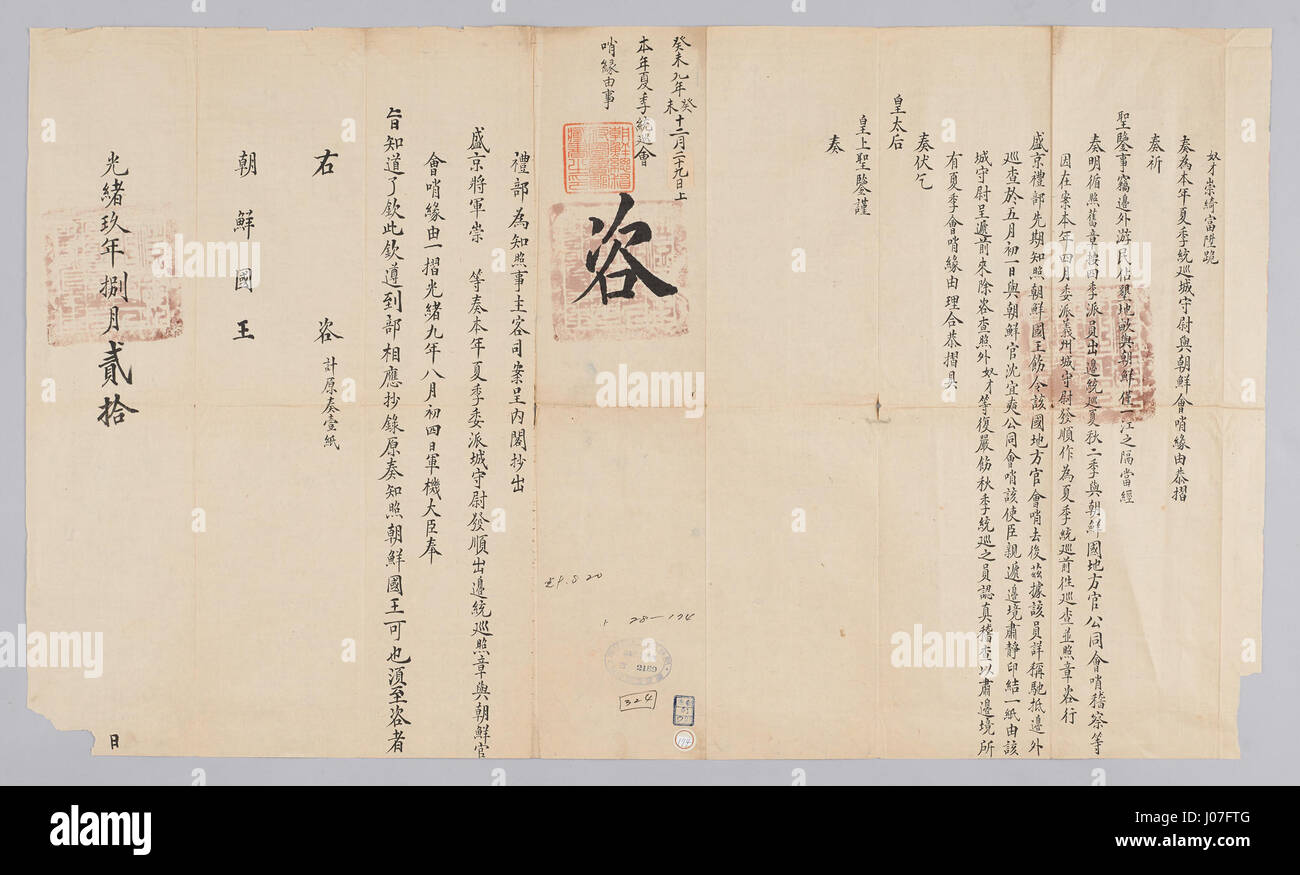 奴才崇綺富陞跪
奏為本年夏季統巡城守尉與朝鮮會哨緣由恭摺
奏祈
聖鑒事竊邊外游民佔墾地畝與朝鮮僅一江之隔當經
奏明循照舊章按四季派員出邊統巡夏秋二季與朝鮮國地方官公同會哨稽察等
因在案本年四月委派義州城守尉發順作為夏季統巡前往巡查並照章咨行
盛京禮部先期知照朝鮮國王飭令該國地方官會哨去後茲據該員詳稱馳抵邊外
巡查於五月初一日與朝鮮官沈宜奭公同會哨該使臣親遞邊境肅靜印結一紙由該
城守尉呈遞前來除咨查照外奴才等復嚴飭秋季統巡之員認真稽查以肅邊境所
有夏季會哨緣由理合恭摺具
奏伏乞
皇太后
皇上聖鑒謹
奏
癸未九年癸未十二月二十九日上
本年夏季統巡會
哨緣由事
咨
禮部為知照事主客司案呈內閣抄出
盛京將軍崇 等奏本年夏季委派城守尉發順出邊統巡照章與朝鮮官
會哨緣由一摺光緒九年八月初四日軍機大臣奉
旨知道了欽此欽遵到部相應抄錄原奏知照朝鮮國王可也須至咨者
右 咨 計原奏壹紙
朝鮮國王
光緒玖年捌月貳拾
日
28-174
2189
324
174
alamy
Image ID: J07FTG
www.alamy.com